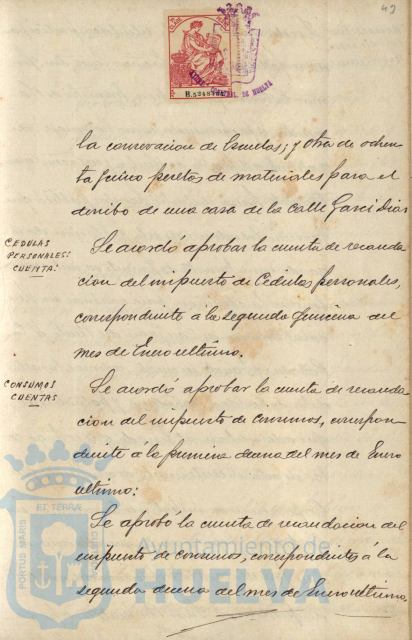 49
B.5248
la conservacion de Escuelas; y otra de ochen-
ta y cinco pesetas de materiales para el
derribo de una casa de la Calle Garci Diaz
CEDULAS
PERSONALES:
CUENTA:
Se acordó aprobar la cuenta de recauda-
cion del impuesto de Cédulas personales,
correspondiente á la segunda quincena del
mes de Enero ultimo.
CONSUMOS
CUENTAS
Se acordó aprobar la cuenta de recauda-
cion del impuesto de consumos, correspon-
diente á la primera decena del mes de Enero
ultimo:
Se aprobó la cuenta de recaudacion del
impuesto de consumos, correspondiente á la
segunda decena del mes de Enero ultimo.
PORTUS MARIS
ET TERRÆ
Ayuntamiento de
HUELVA
DE HUELVA